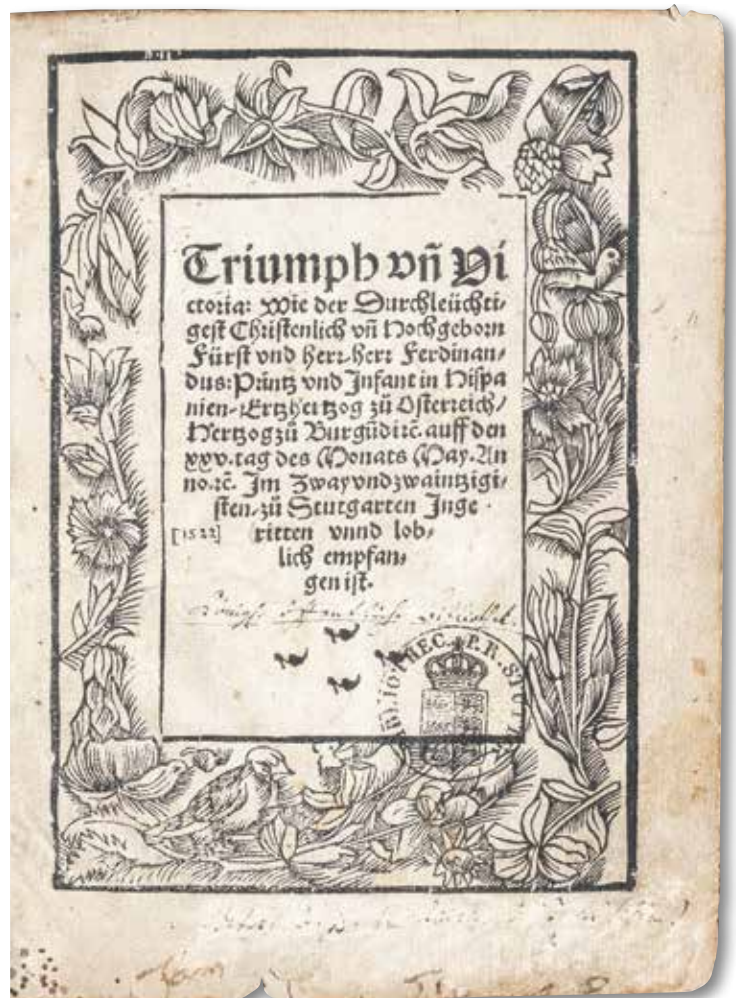 Triumph vñ Vi
ctoria: Wie der Durchleüchti⸗
gest Christenlich vñ Hochgeborn
Fürst vnd herr⸗herr Ferdinan⸗
dus: Printz vnd Infant in Hispa
nien⸗Ertzhertzog zů Osterreich/
Hertzog zů Burgũdi ꝛc̄. auff den
xxv. tag des Monats May. An
no. ꝛc̄. Im Zway vnd zwaintzigi⸗
sten⸗zů Stutgarten Inge
[1522] ritten vnnd lob⸗
lich empfan⸗
gen ist.
Königl. öffentliche Bibliothek.
BIBLIOTHEC. P. R. STUTT